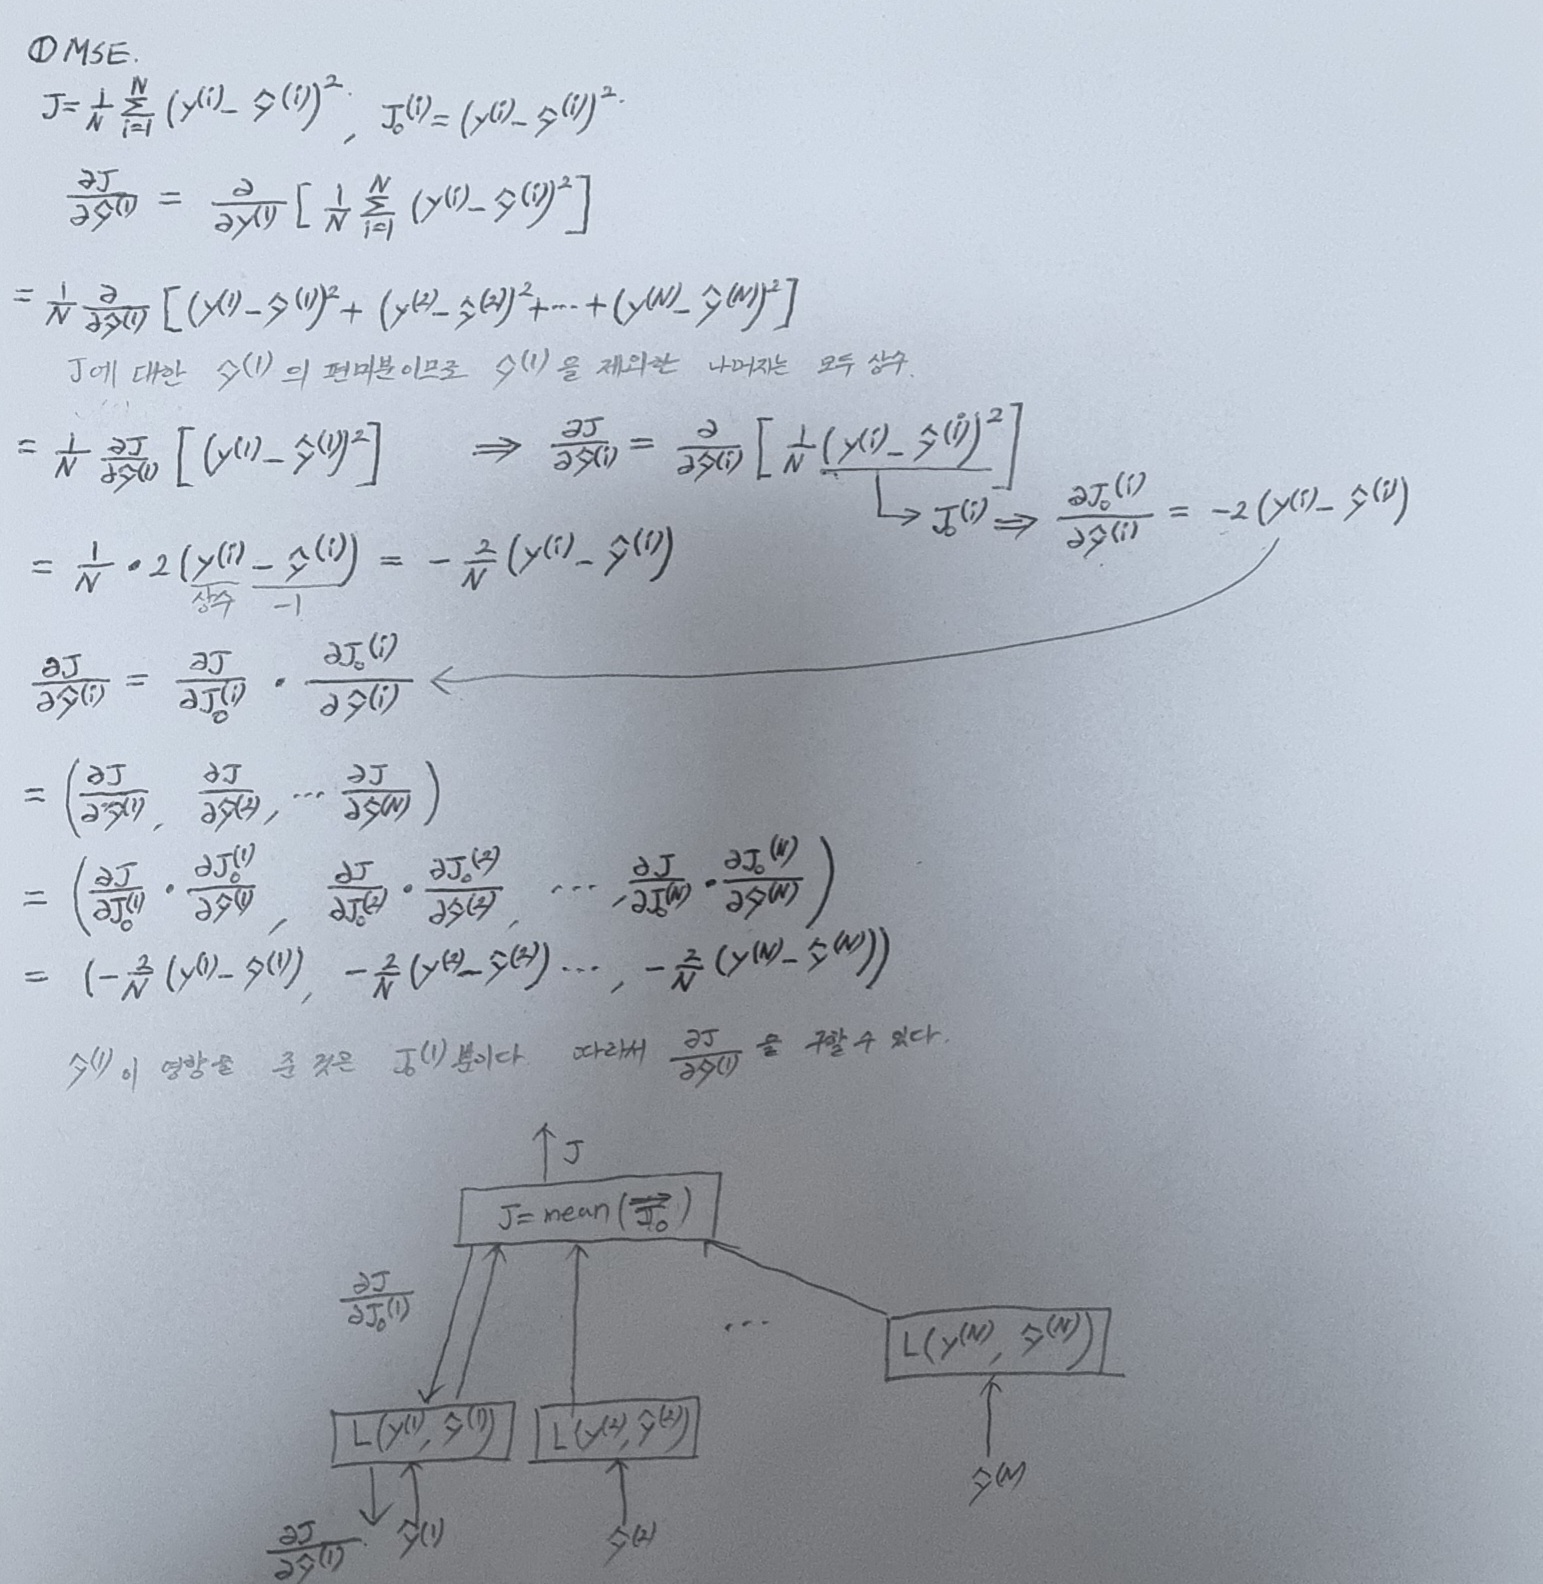 ① MSE.
J = 1/N Σ_{i=1}^{N} (y^(i) - ŷ^(i))². , J₀^(i) = (y^(i) - ŷ^(i))².
∂J/∂ŷ^(1) = ∂/∂y^(1) [ 1/N Σ_{i=1}^{N} (y^(i) - ŷ^(i))² ]
= 1/N ∂/∂ŷ^(1) [ (y^(1) - ŷ^(1))² + (y^(2) - ŷ^(2))² + ··· + (y^(N) - ŷ^(N))² ]
J에 대한 ŷ^(1) 의 편미분이므로 ŷ^(1) 을 제외한 나머지는 모두 상수.
= 1/N ∂J/∂ŷ^(1) [ (y^(1) - ŷ^(1))² ] ⇒ ∂J/∂ŷ^(i) = ∂/∂ŷ^(i) [ 1/N (y^(i) - ŷ^(i))² ]
↳ J₀^(i) ⇒ ∂J₀^(i)/∂ŷ^(i) = -2 (y^(i) - ŷ^(i))
= 1/N · 2 (y^(i) - ŷ^(i)) = - 2/N (y^(i) - ŷ^(i))
상수 -1
∂J/∂ŷ^(i) = ∂J/∂J₀^(i) · ∂J₀^(i)/∂ŷ^(i)
= ( ∂J/∂ŷ^(1), ∂J/∂ŷ^(2), ··· ∂J/∂ŷ^(N) )
= ( ∂J/∂J₀^(1) · ∂J₀^(1)/∂ŷ^(1), ∂J/∂J₀^(2) · ∂J₀^(2)/∂ŷ^(2), ··· , ∂J/∂J₀^(N) · ∂J₀^(N)/∂ŷ^(N) )
= (- 2/N (y^(1) - ŷ^(1)), - 2/N (y^(2) - ŷ^(2)) ··· , - 2/N (y^(N) - ŷ^(N)))
ŷ^(1) 이 영향을 준 것은 J₀^(1) 뿐이다. 따라서 ∂J/∂ŷ^(1) 을 구할 수 있다.
J
J = mean(J₀→)
∂J/∂J₀^(1)
···
L(y^(N), ŷ^(N))
L(y^(1), ŷ^(1)) L(y^(2), ŷ^(2))
ŷ^(N)
∂J/∂ŷ^(1) ŷ^(1) ŷ^(2)